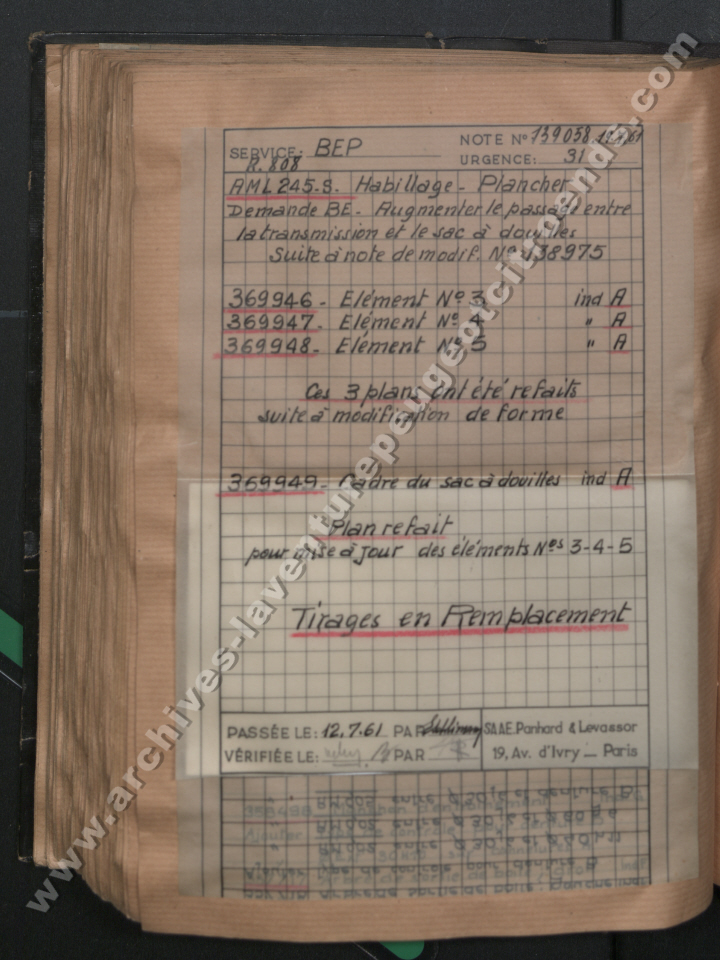 SERVICE: BEP
NOTE N° 139038. 12.7.61
R. 808
URGENCE: 31
AML 245-S. Habillage - Plancher
Demande BE - Augmenter le passage entre
la transmission et le sac à douilles
Suite à note de modif. N° 138975
369946 - Elément N° 3 ind A
369947 - Elément N° 4 " A
369948 - Elément N° 5 " A
Ces 3 plans ont été refaits
suite à modification de forme
369949 - Cadre du sac à douilles ind A
Plan refait
pour mise à jour des éléments Nos 3-4-5
Tirages en Remplacement
PASSÉE LE: 12.7.61 PAR
SAAE. Panhard & Levassor
VÉRIFIÉE LE: PAR
19, Av. d'Ivry - Paris
www.archives-laventurepeugeotcitroends.com